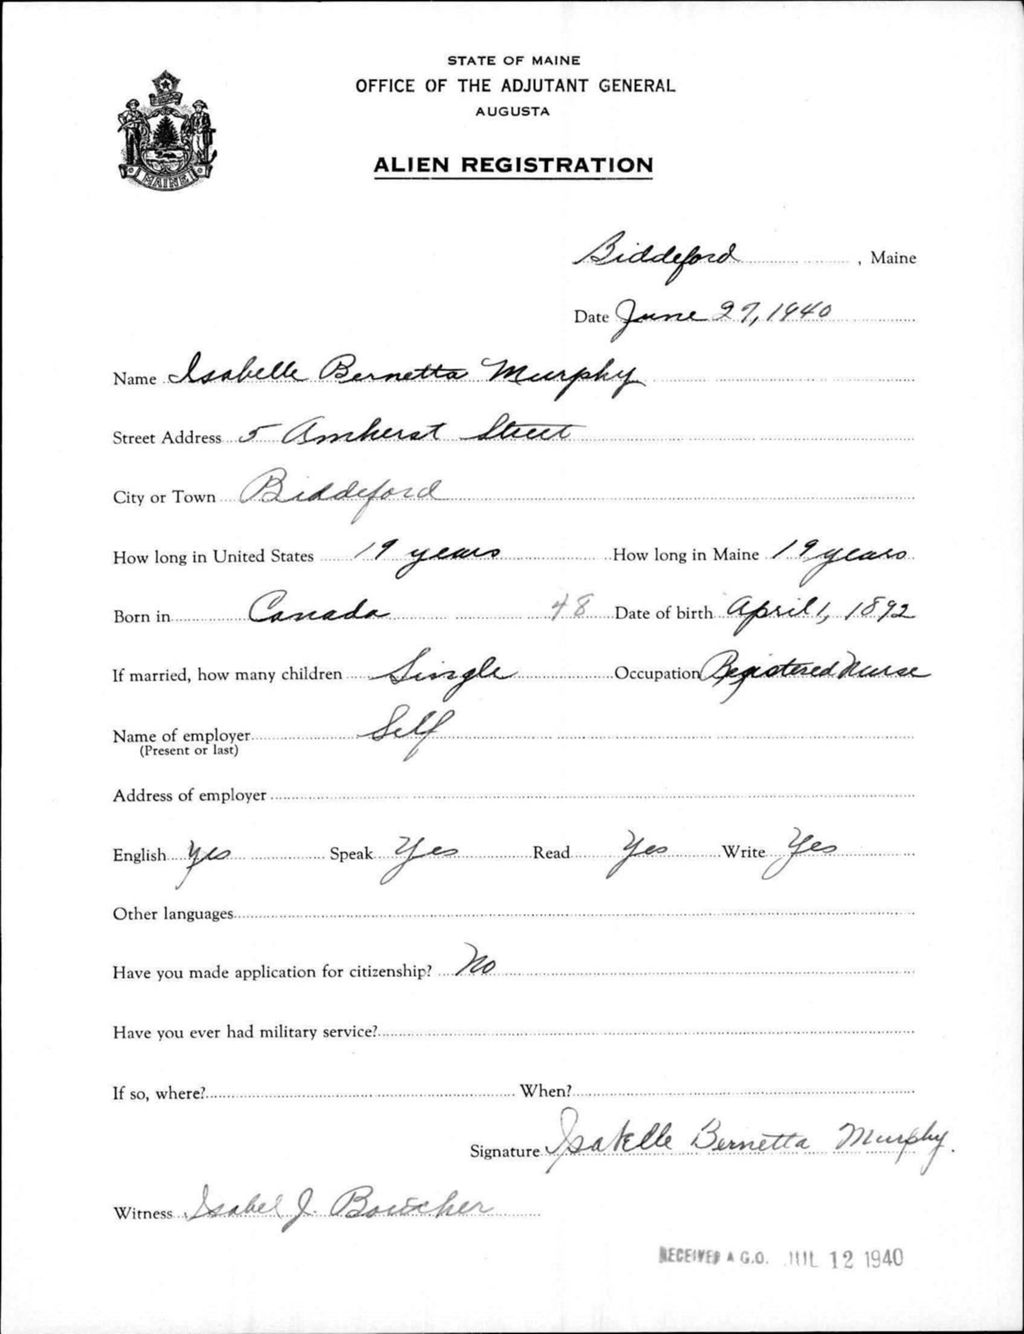 STATE OF MAINE
OFFICE OF THE ADJUTANT GENERAL
AUGUSTA
ALIEN REGISTRATION
MAINE
Biddeford, Maine
Date June 27, 1940
Name Isabelle Bernetta Murphy
Street Address 5 Amherst Street
City or Town Biddeford
How long in United States 19 years How long in Maine 19 years
Born in Canada 48 Date of birth April 1, 1892
If married, how many children Single Occupation Registered Nurse
Name of employer Self
(Present or last)
Address of employer
English Yes Speak Yes Read Yes Write Yes
Other languages
Have you made application for citizenship? No
Have you ever had military service?
If so, where? When?
Signature Isabelle Bernetta Murphy.
Witness Isabel J.
RECEIVED A.G.O. JUL 12 1940